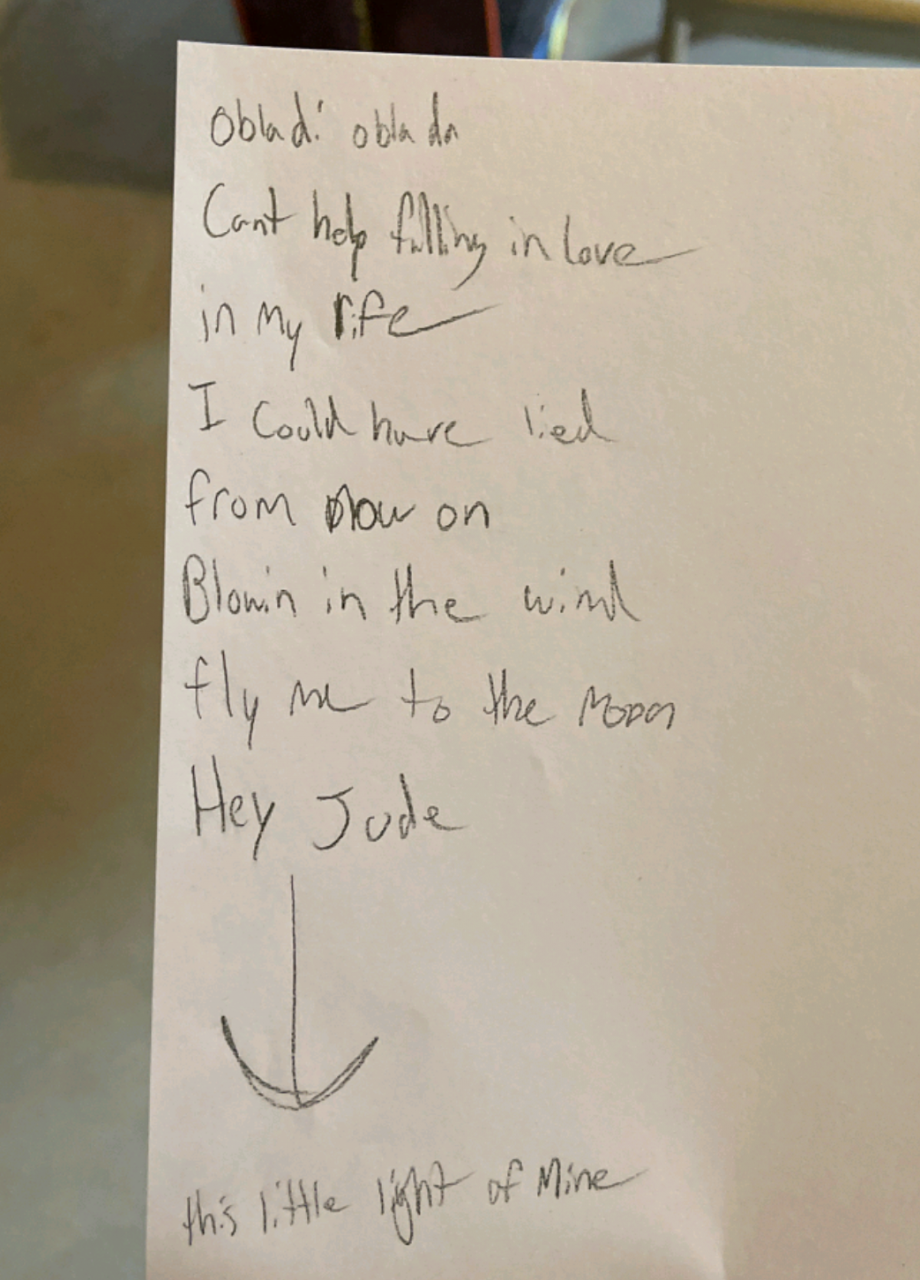 Obladi oblada
Cant help falling in love
in my life
I Could have lied
from now on
Blowin in the wind
fly me to the Moon
Hey Jude
this little light of Mine